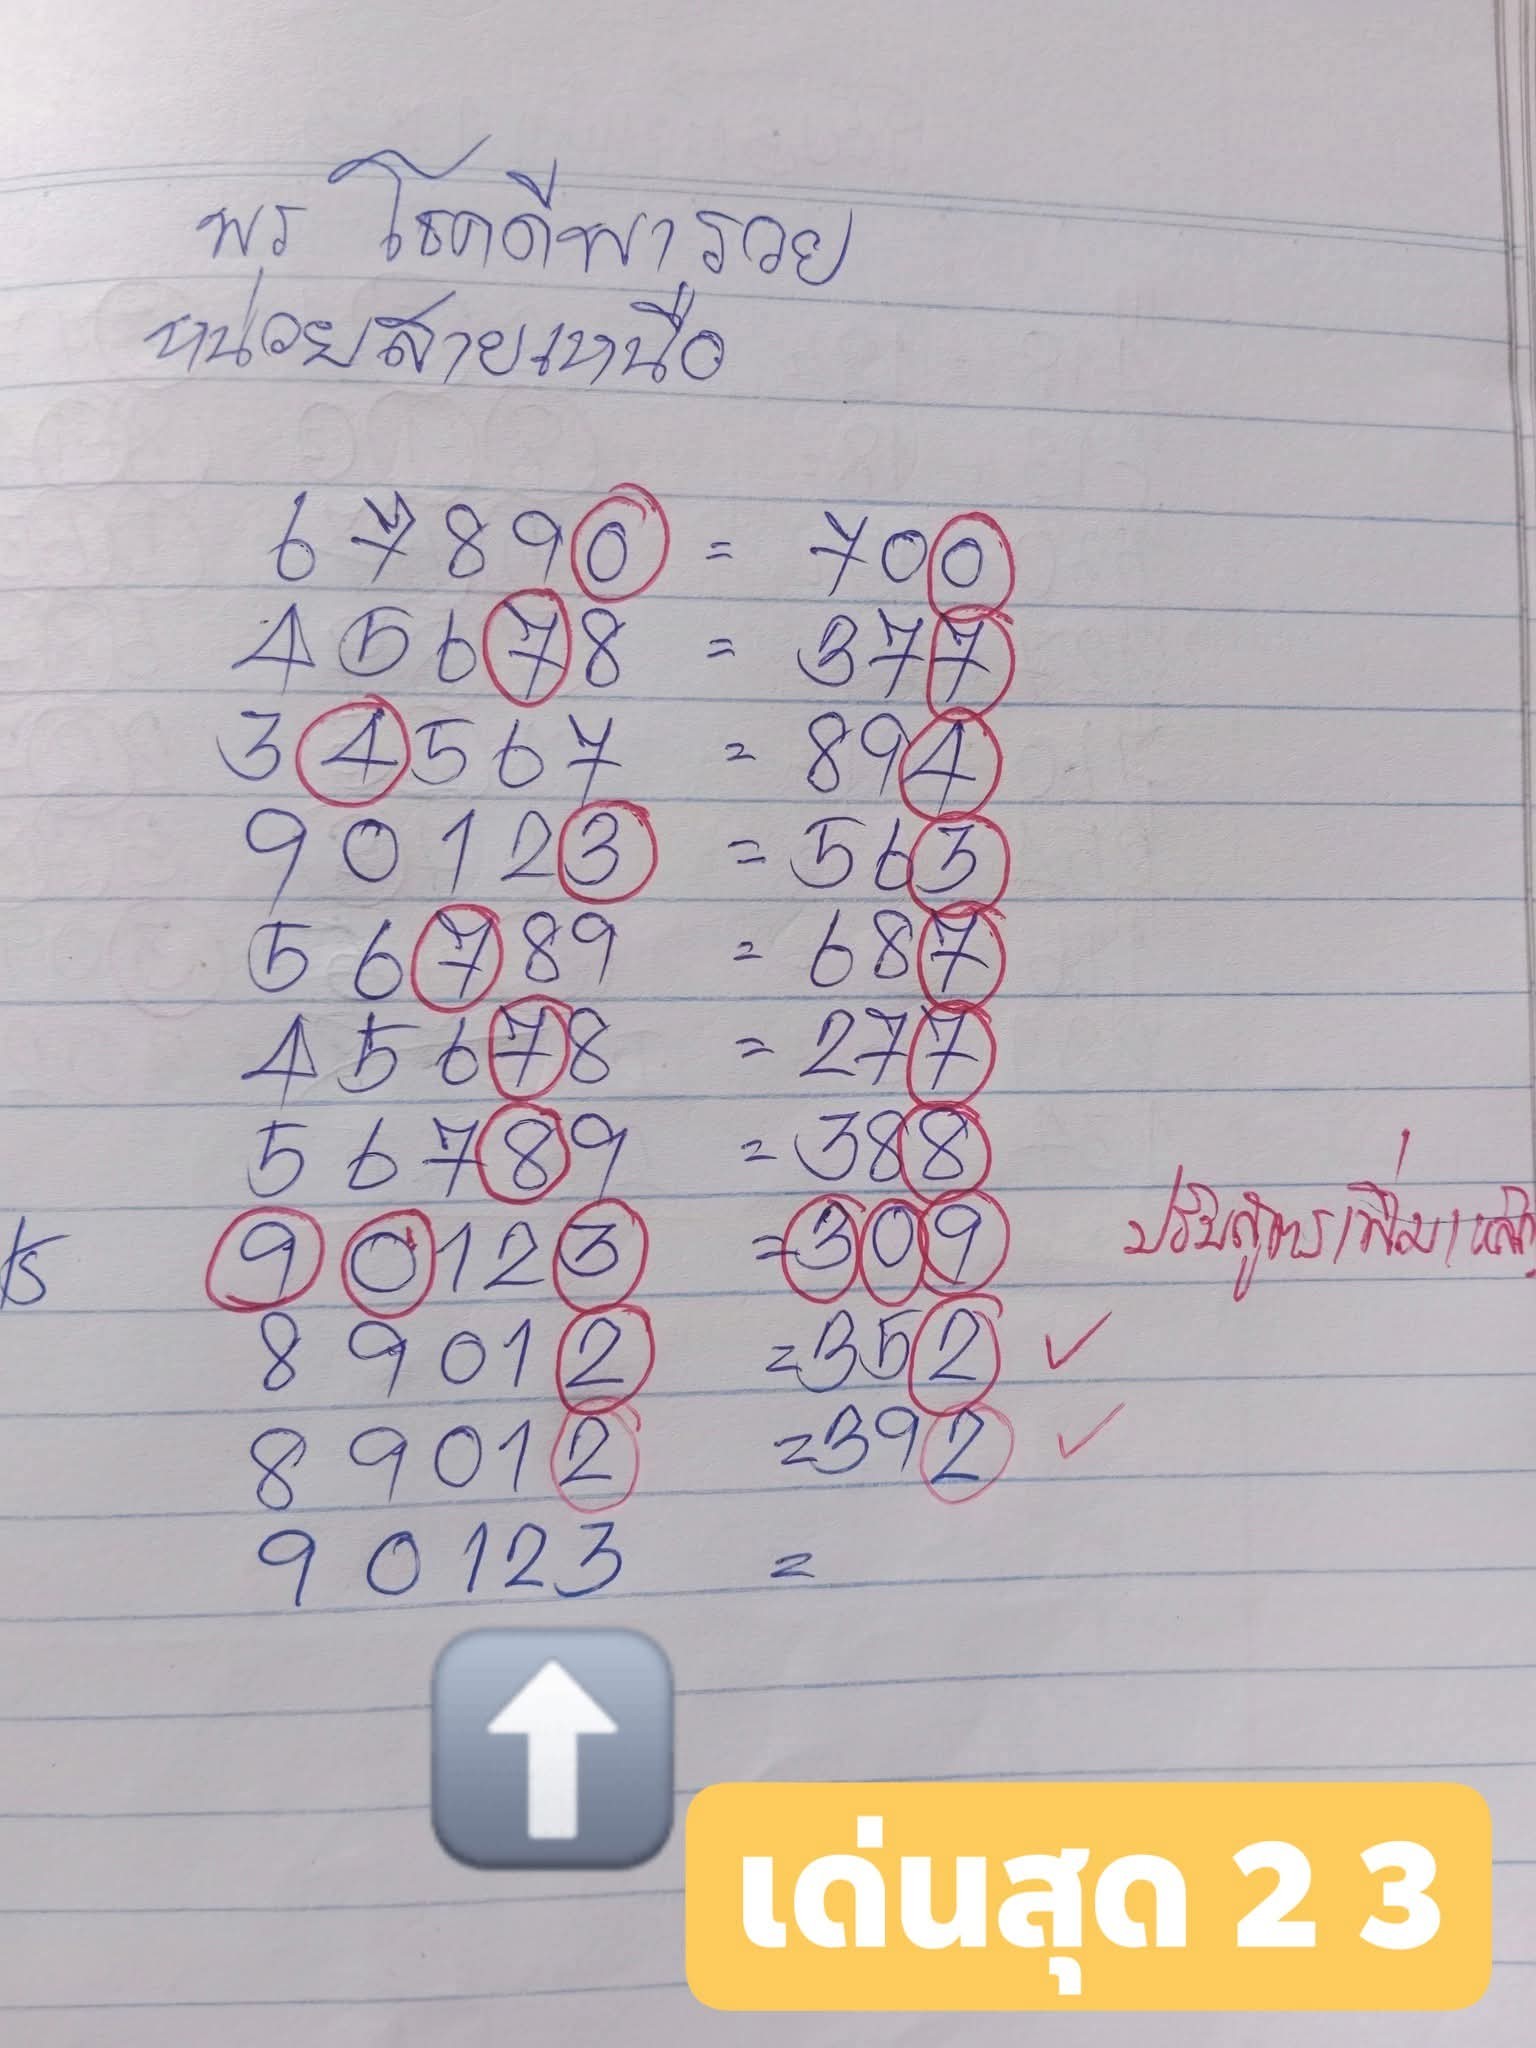 พร โชคดีพารวย
หน่วยสายเหนือ
6 7 8 9 0 = 700
4 5 6 7 8 = 377
3 4 5 6 7 = 894
9 0 1 2 3 = 563
5 6 7 8 9 = 687
4 5 6 7 8 = 277
5 6 7 8 9 = 388
9 0 1 2 3 = 309 ปรับสูตรเพิ่ม
8 9 0 1 2 = 352 ✓
8 9 0 1 2 = 392 ✓
9 0 1 2 3 =
เด่นสุด 2 3